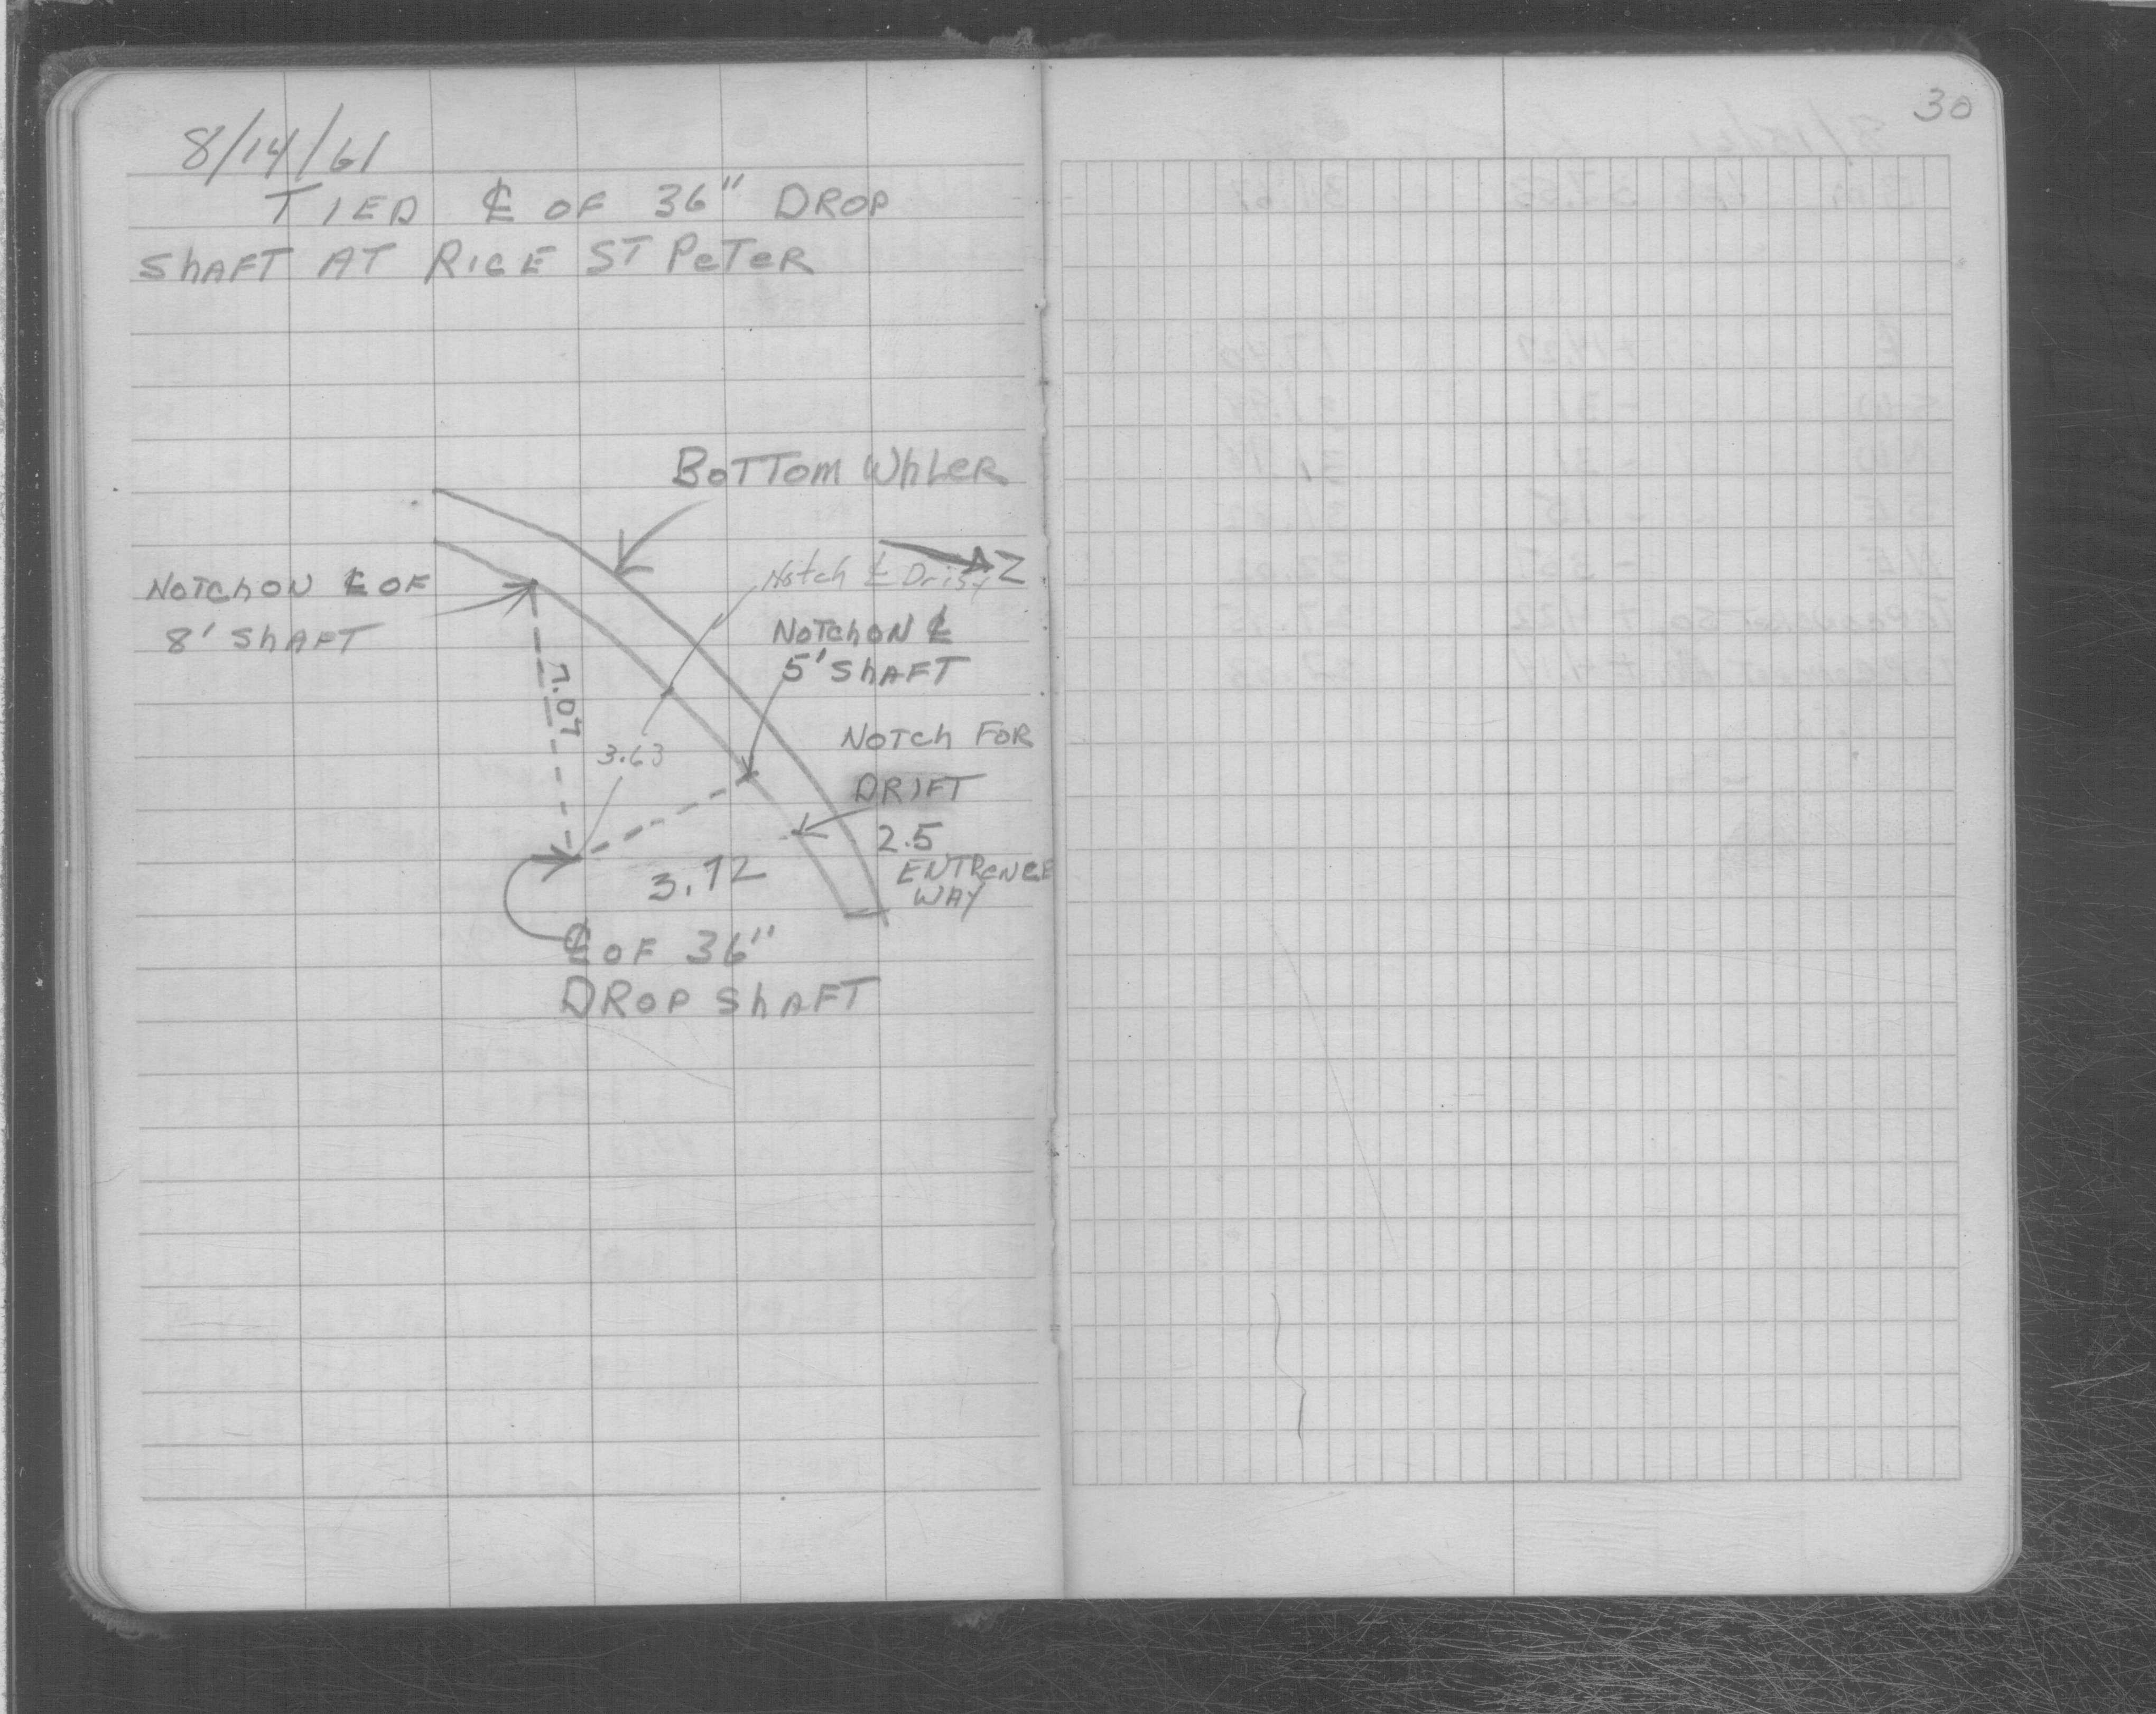 30
8/14/61
TIED ℄ OF 36" DROP
ShAFT AT RICE ST PeTeR
BOTTOM WhLeR
Z
Notch ℄ Drift
NOTCh ON ℄ OF
8' ShAFT
NOTCh ON ℄
5' ShAFT
7.07
3.63
NOTCh FOR
DRIFT
2.5
ENTReNCE
WAY
3.72
℄ OF 36"
DROP ShAFT